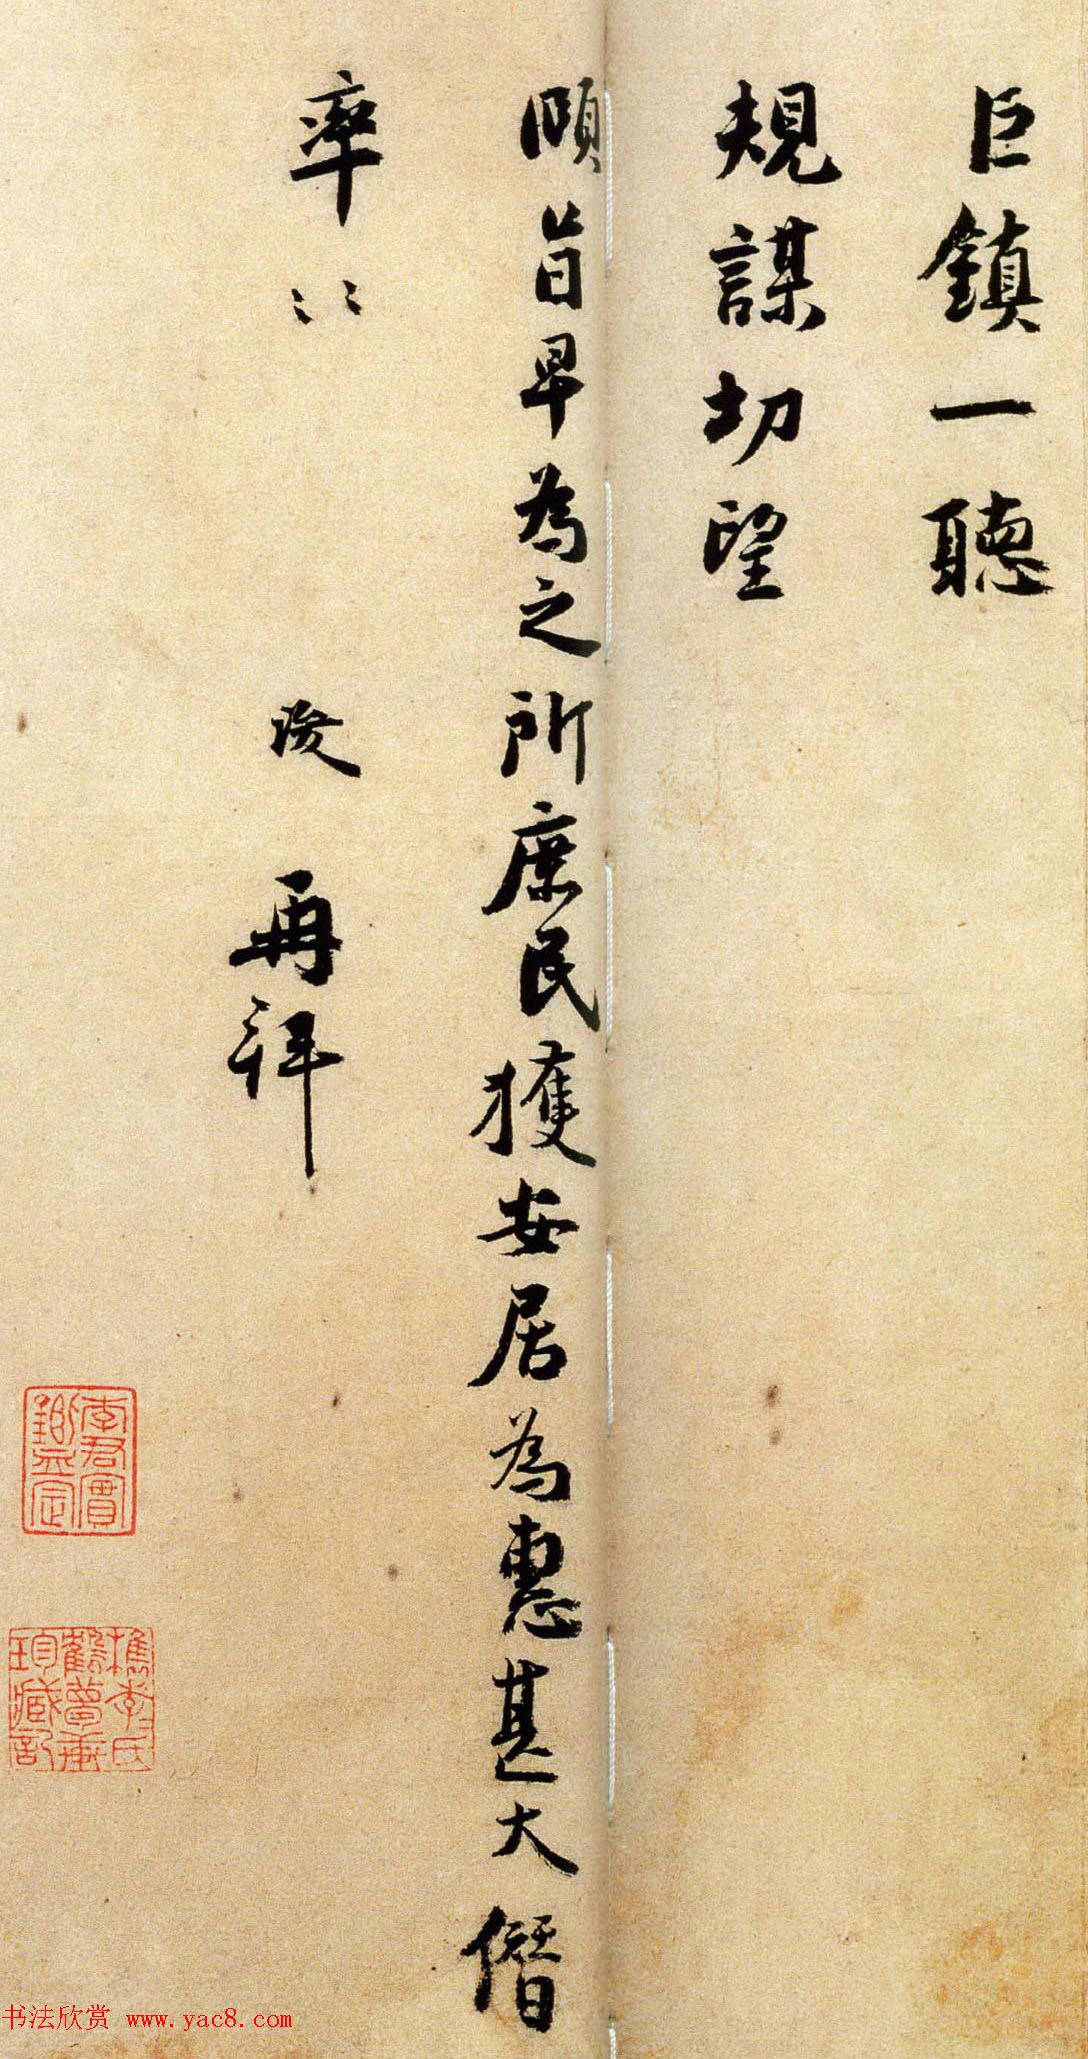 巨鎮一聽
規謀切望
頤旨早為之所庶民獲安居為惠甚大僭
率〻
浚再拜
李君實
鑒定
檇李氏
鶴夢軒
珍藏記
书法欣赏 www.yac8.com